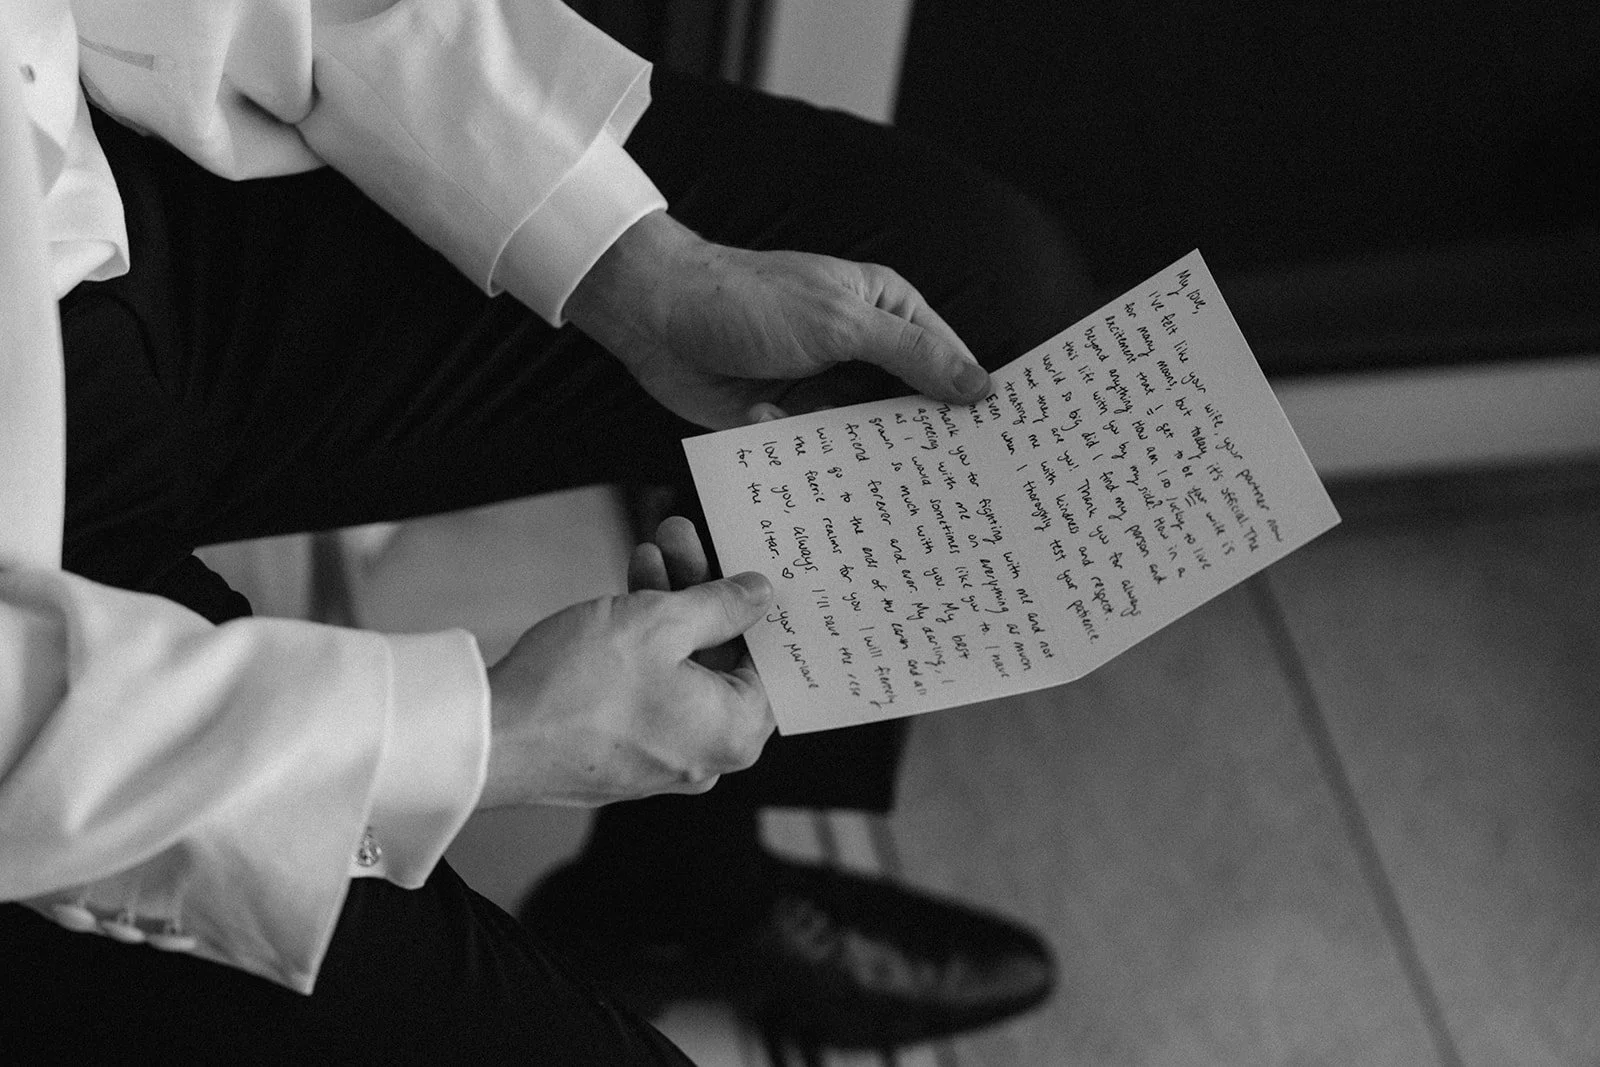 My love,
I've felt like your wife, your partner now
for many moons, but today it's official. The
excitement that I get to be your wife is
beyond anything. How am I so lucky to live
this life with you by my side? How in a
world so big did I find my person and
that they are you! Thank you for always
treating me with kindness and respect.
Even when I thoroughly test your patience.
Thank you for fighting with me and not
agreeing with me on everything as much
as I would sometimes like you to. I have
grown so much with you. My best
friend forever and ever. My darling, I
will go to the ends of the earth and all
the faerie realms for you. I will fiercely
love you, always. I'll save the rest
for the altar. ♡
- your Mariane